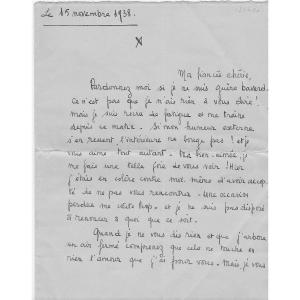 Le 15 novembre 1938.
Ma fiancée chérie,
Pardonnez moi si je ne suis guère bavard.
Ce n'est pas que je n'ai rien à vous dire!
mais je suis recru de fatigue et me traîne
depuis ce matin. Si mon humeur externe
s'en ressent l'intérieure ne bouge pas! et je
vous aime tout autant. Ma bien-aimée, j'
me fais une telle joie de vous voir! Hier
j'étais en colère contre moi-même d'avoir accep-
té de ne pas vous rencontrer. Une occasion
perdue me coûte trop. et je ne suis pas disposé
à renoncer à quoi que ce soit.
Quand je ne vous dis rien et que j'arbore
un air fermé comprenez que cela ne touche en
rien l'amour que j'ai pour vous. Mais je vous